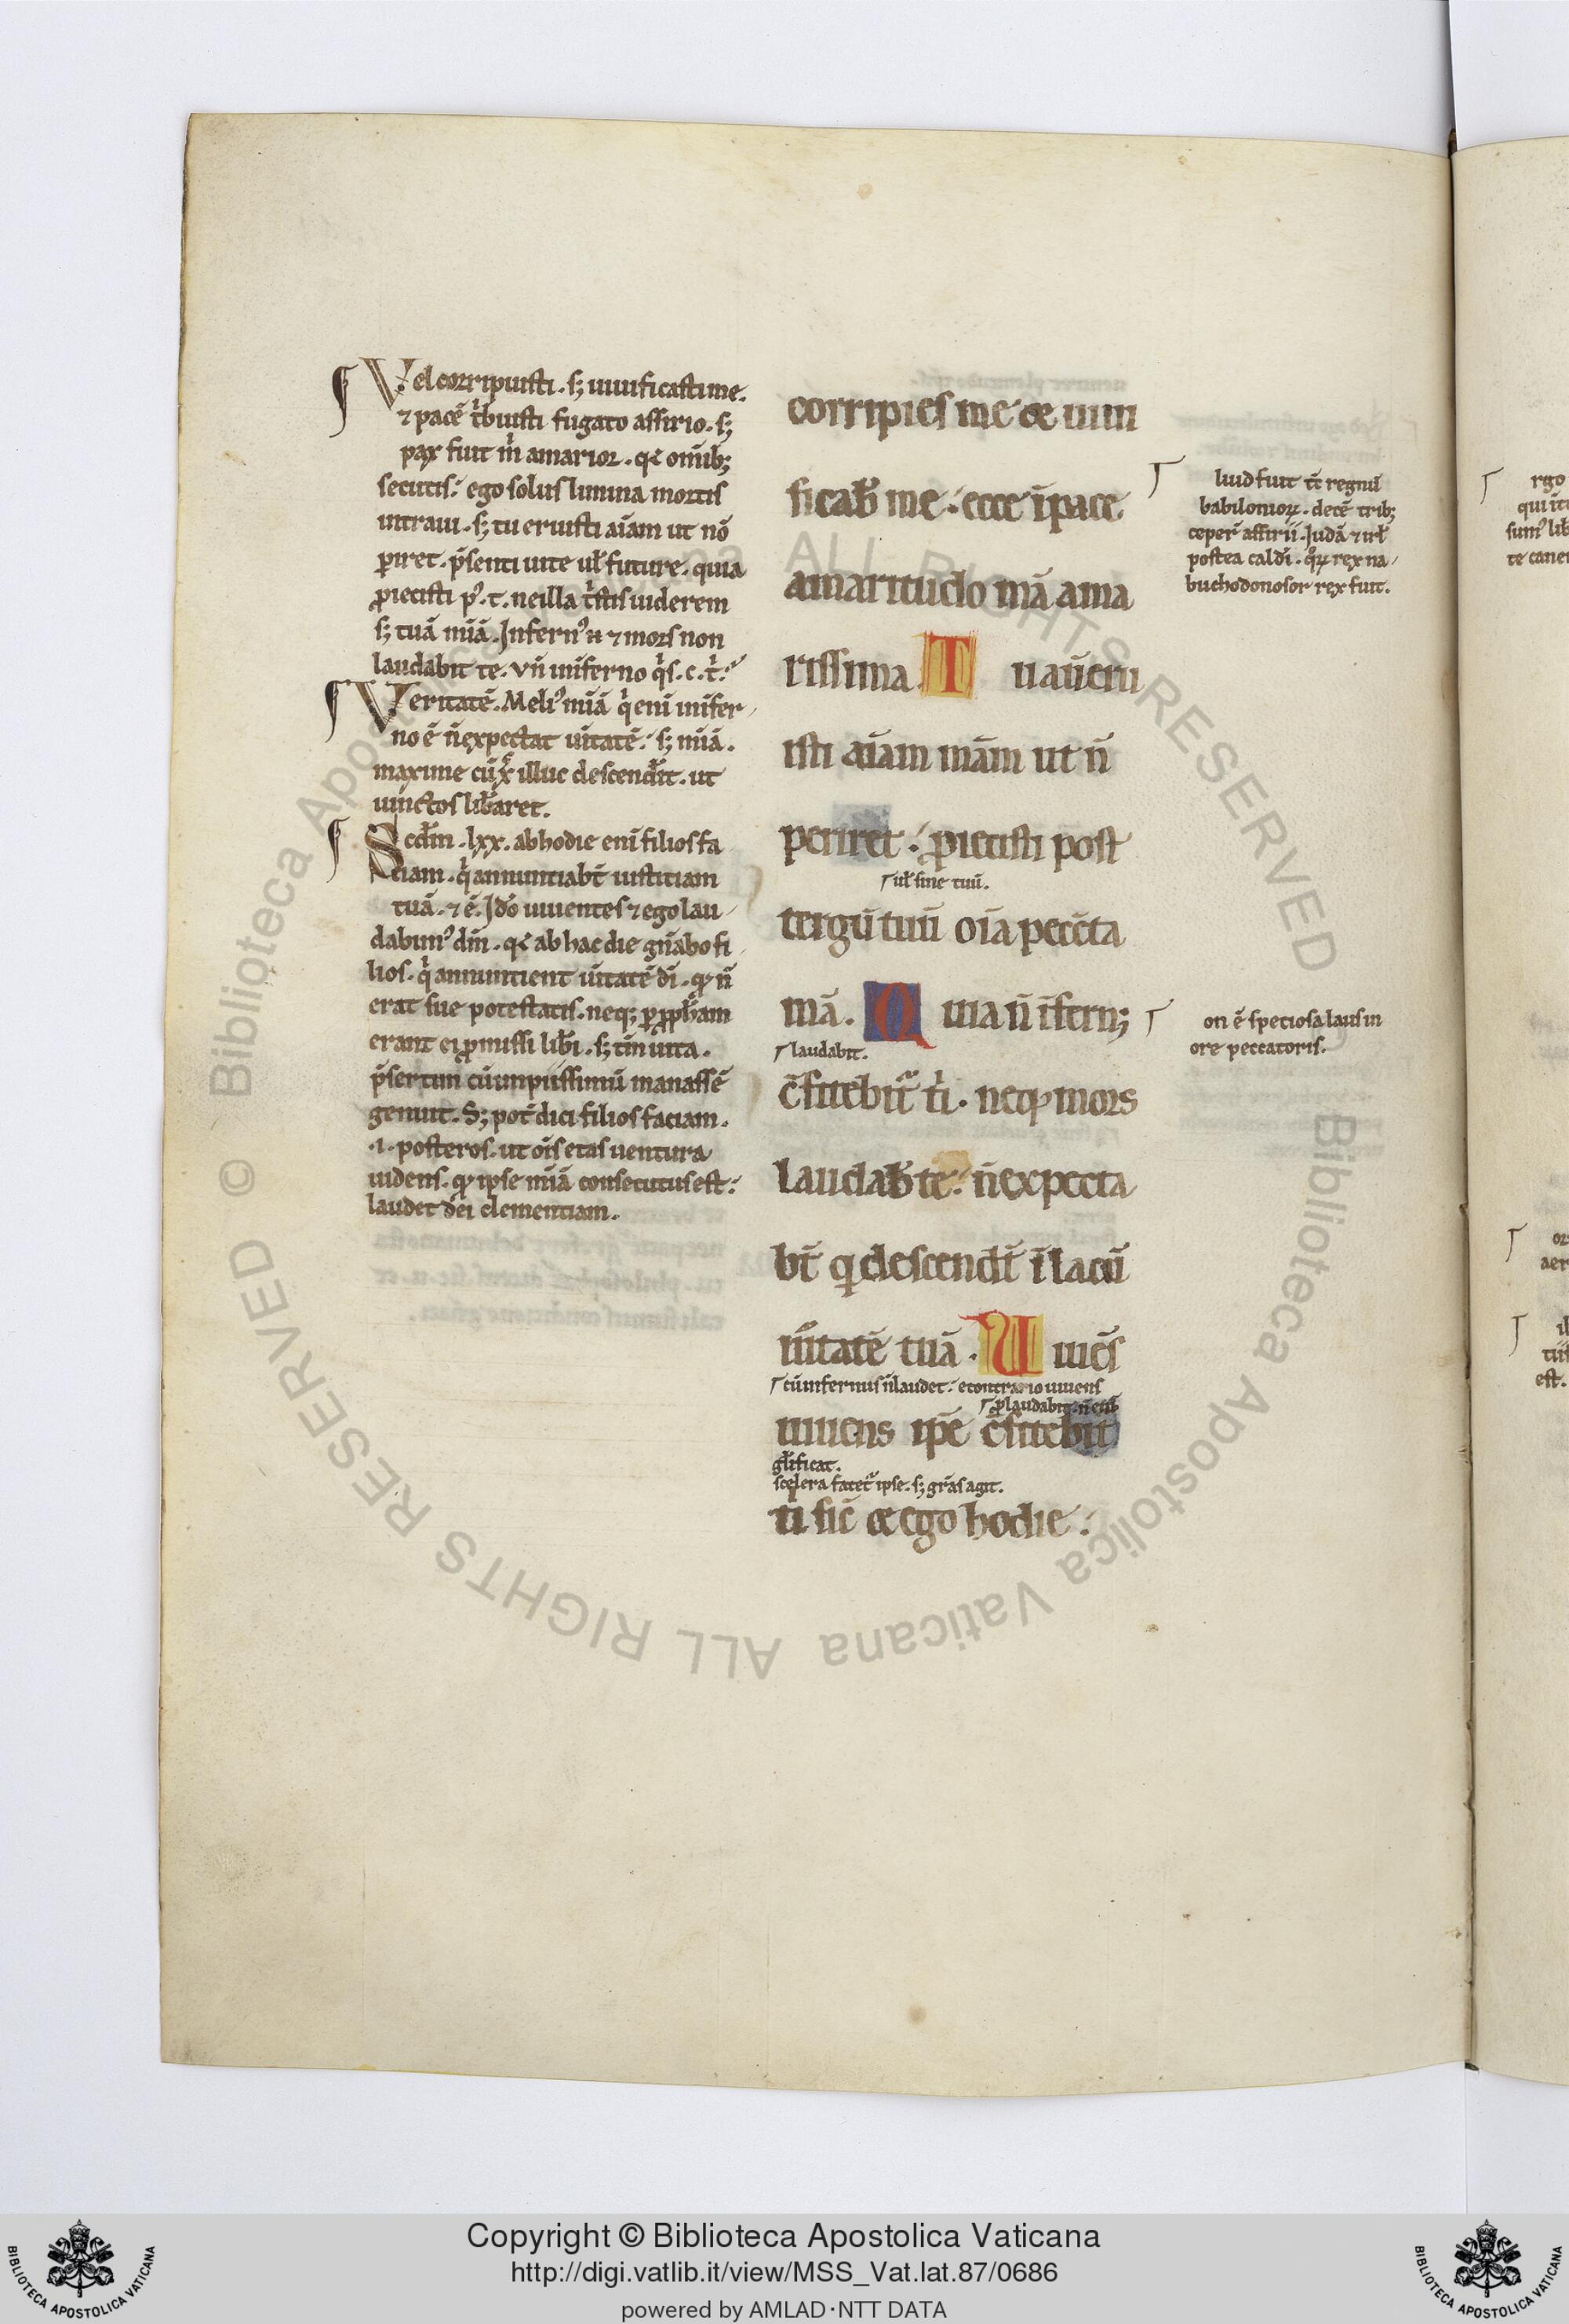 Vel corripuisti . s; uiuificasti me.
⁊ pacē tͥbuisti fugato assirio . s;
pax fuit m̄ amarior . qꝛ omib;
secutis: ego solus limina mortis
intraui . s; tu eruisti aīam ut nō
ꝑiret . p̄senti uite ul̄ future . quia
ꝓiecisti pꝰ . t . ne illa tͥstis uiderem
s; tuā mīā . Infernꝰ n̄ ⁊ mors non
laudabit te . Vn̄ in inferno qͥs . c . tͥ:
Veritatē . Meliꝰ mīā qͥ enī in infer
no ē n̄ expectat ūitatē: s; mīā .
maxime cū xͬ illuc descendit . ut
uinctos libaret.
Scd̄m . lxx . ab hodie enī filios fa
ciam . qͥ annuntiabt̄ iustitiam
tuā . ⁊ ē . Ido uiuentes ⁊ ego lau
dabimꝰ dm̄ . qꝛ ab hac die gn̄abo fi
lios . qͥ annuntient ūitatē dī . qꝫ n̄
erat sue potestatis . neq; ꝑ ꝓph̄am
erant ei ꝓmissi libi . s; tm̄ uita .
p̄sertim cū impiissimū manassē
genuit . S; pot̄ dici filios faciam .
.i. posteros . ut ōis etas uentura
uidens . qꝫ ipse mīā consecutus est:
laudet dei clementiam .
corripies me et uiui
ficab̄ me: ecce ī pace
amaritudo mā ama
rissima . Tu aūt eru
isti aīam mām ut n̄
periret: ꝓiecisti post
ul̄ sine tuū.
tergū tuū oīa peccta
mā . Quia n̄ īfern;
laudabit.
c̄fitebit̄ᵃ tͥ . neqꝫ mors
laudab̄ te: n̄ expecta
bt̄ q descendt̄ ī lacū
ūitatē tuā . Uiuēs
cū infernus n̄ laudet: e contrario uiuens
laudabit
uiuens ipē c̄fitebit̄
gl̄ificat.
scelera fatetᷣ ipse . s; gr̄as agit.
tͥ sic̄ et ego hodie:
luid fuit tc̄ regnū
babilonioꝝ . decē trib;
ceper̄ assirii . Judā ⁊ irl̄
postea caldi . qͦꝝ rex na
buchodonosor rex fuit.
on ē speciosa laus in
ore peccatoris.
rgo
Copyright © Biblioteca Apostolica Vaticana
http://digi.vatlib.it/view/MSS_Vat.lat.87/0686
powered by AMLAD·NTT DATA
BIBLIOTECA APOSTOLICA VATICANA
BIBLIOTECA APOSTOLICA VATICANA
© Biblioteca Apostolica Vaticana ALL RIGHTS RESERVED
Biblioteca Apostolica Vaticana ALL RIGHTS RESERVED